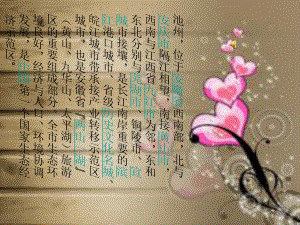 池州，位于安徽省西南部，北与
安庆市隔江相望，南接
西南与江西省九江市为邻，东和
铜陵市、
城市接壤，是长江南岸重要的
江港口城市，省级历史文化名城，
皖江城市带承接产业转移示范区
城市，也是安徽省
（黄山、九华山、太平湖）旅游
区的重要组成部分。全市生态环
境良好，经济与人口、环境协调
发展，是中国第一个国家生态经
济示范区。